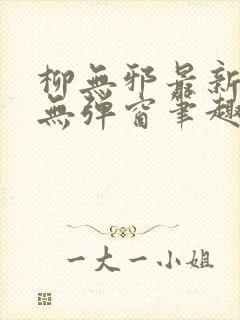 柳無邪最新
無彈窗筆趣
一大一小姐